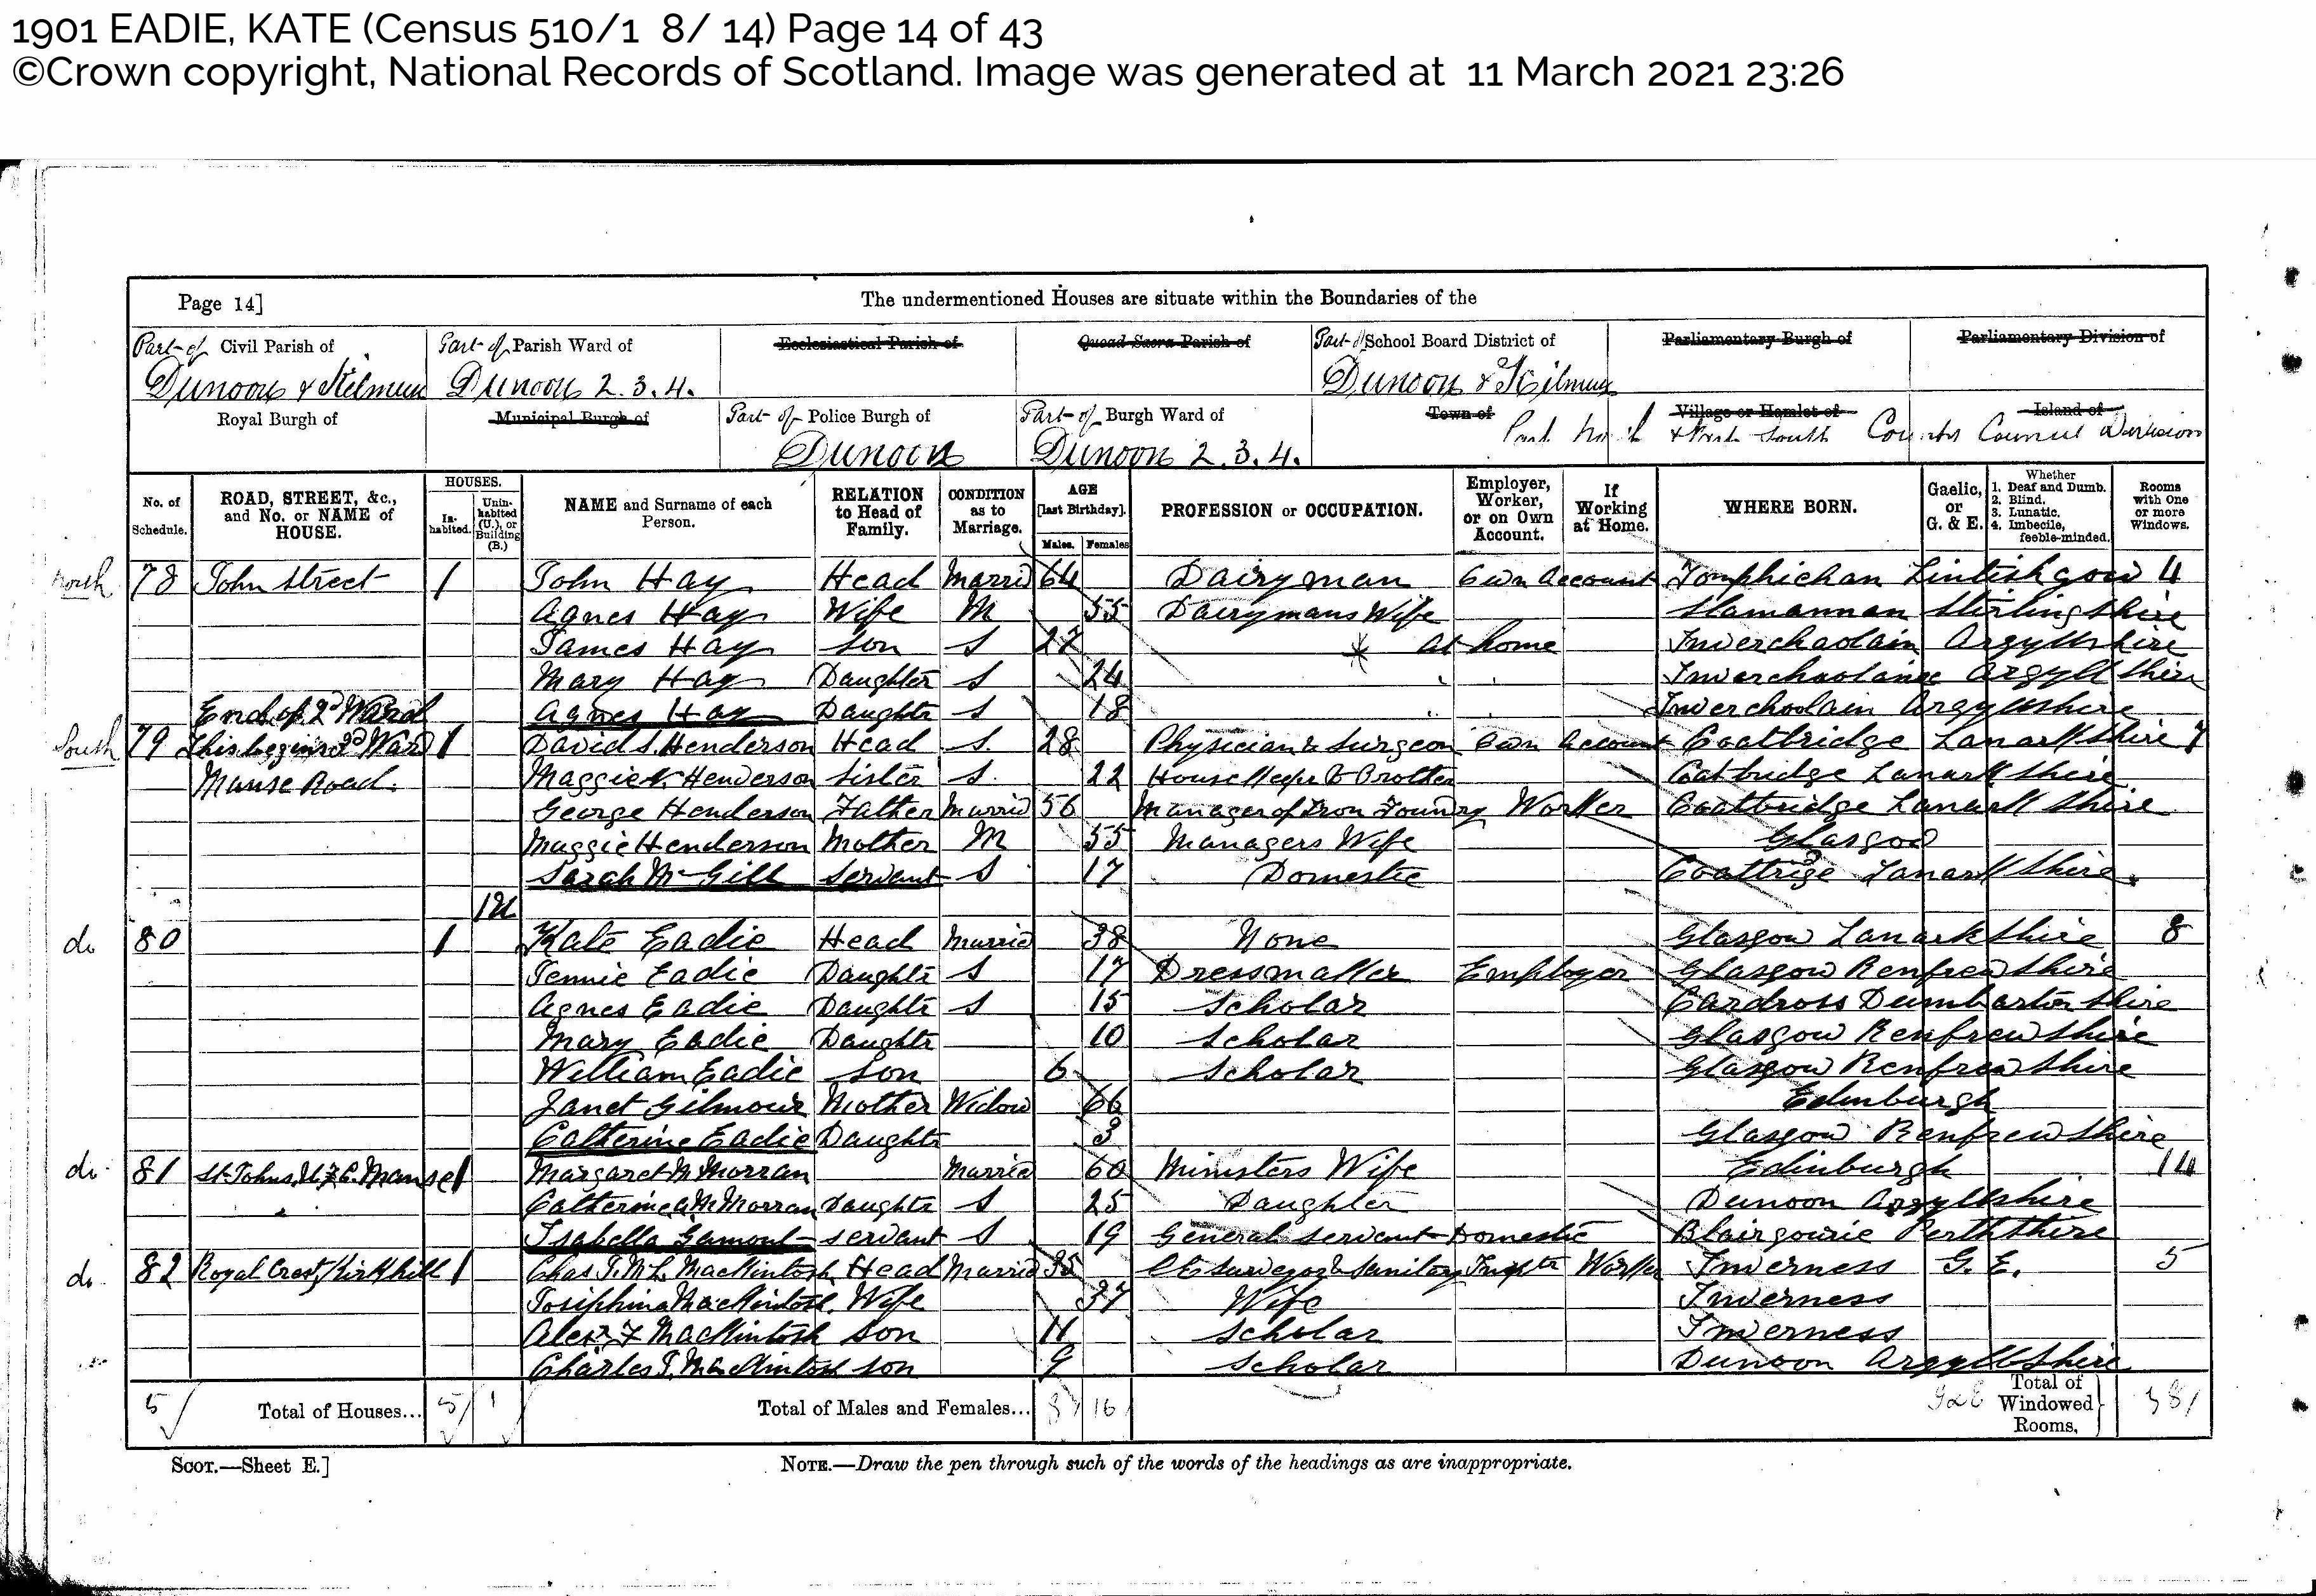 1901 EADIE, KATE (Census 510/1 8/ 14) Page 14 of 43
©Crown copyright, National Records of Scotland. Image was generated at 11 March 2021 23:26
Page 14] The undermentioned Houses are situate within the Boundaries of the
Part of Civil Parish of Part of Parish Ward of Ecclesiastical Parish of Quoad Sacra Parish of Part of School Board District of Parliamentary Burgh of Parliamentary Division of
Dunoon & Kilmun Dunoon 2. 3. 4. Dunoon & Kilmun
Royal Burgh of Municipal Burgh of Part of Police Burgh of Part of Burgh Ward of Town of Village or Hamlet of Island of
Dunoon Dunoon 2. 3. 4. Part & Part South County Council Division
No. of Schedule. ROAD, STREET, &c., and No. or NAME of HOUSE. HOUSES. Inhabited. Uninhabited (U.), or Building (B.) NAME and Surname of each Person. RELATION to Head of Family. CONDITION as to Marriage. AGE [last Birthday]. Males. Females. PROFESSION or OCCUPATION. Employer, Worker, or on Own Account. If Working at Home. WHERE BORN. Gaelic, or G. & E. Whether 1. Deaf and Dumb. 2. Blind. 3. Lunatic. 4. Imbecile, feeble-minded. Rooms with One or more Windows.
North 78 John Street 1 John Hay Head Married 64 Dairyman Own Account Torphichan Linlishgow 4
Agnes Hay Wife M 55 Dairymans Wife Slamannan Stirlingshire
James Hay Son S 27 at home Inverchaolain Argyllshire
Mary Hay Daughter S 24 Argyllshire
End of 2d Ward Agnes Hay Daughtr S 18 Inverchoolain Argyllshire
South 79 This begins 3d Ward 1 David S. Henderson Head S. 28 Physician & Surgeon Own Account Coatbridge Lanarkshire 7
Manse Road. Maggie Henderson Sister S. 22 Coatbridge Lanarkshire
George Henderson Father Married 56 Manager of Iron Foundry Worker Coatbridge Lanarkshire
Maggie Henderson Mother M 55 Managers Wife Glasgow
Sarah McGill Servant S 17 Domestic Lanarkshire.
1U
do 80 1 Kate Eadie Head Married 38 None Glasgow Lanarkshire 8
Jennie Eadie Daughtr S 17 Dressmaker Employer Glasgow Renfrewshire
Agnes Eadie Daughtr S 15 Scholar Cardross Dumbartonshire
Mary Eadie Daughtr 10 Scholar Glasgow Renfrewshire
William Eadie Son 6 Scholar Glasgow Renfrewshire
Janet Gilmour Mother Widow 66 Edinburgh
Catherine Eadie Daughtr 3 Glasgow Renfrewshire
do 81 St Johns U.F.C. Manse 1 Margaret McMorran Married 60 Ministers Wife Edinburgh 14
Catherine A. McMorran Daughtr S 25 Daughter Dunoon Argyllshire
Isabella Lamont Servant S 19 General Servant Domestic Blairgowrie Perthshire
do 82 Royal Cresct, Kirkhill 1 Chas MacKintosh Head Married 35 C E Surveyor & Sanitary Worker Inverness G. E. 5
Josiphina MacKintosh. Wife 37 Wife Inverness
Alexr F MacKintosh Son 11 Scholar Inverness
Charles MacKintosh Son 9 Scholar Dunoon Argyllshire
5 Total of Houses... 5 1 Total of Males and Females... 16 G & E Total of Windowed Rooms, 38
SCOT.—Sheet E.] NOTE.—Draw the pen through such of the words of the headings as are inappropriate.